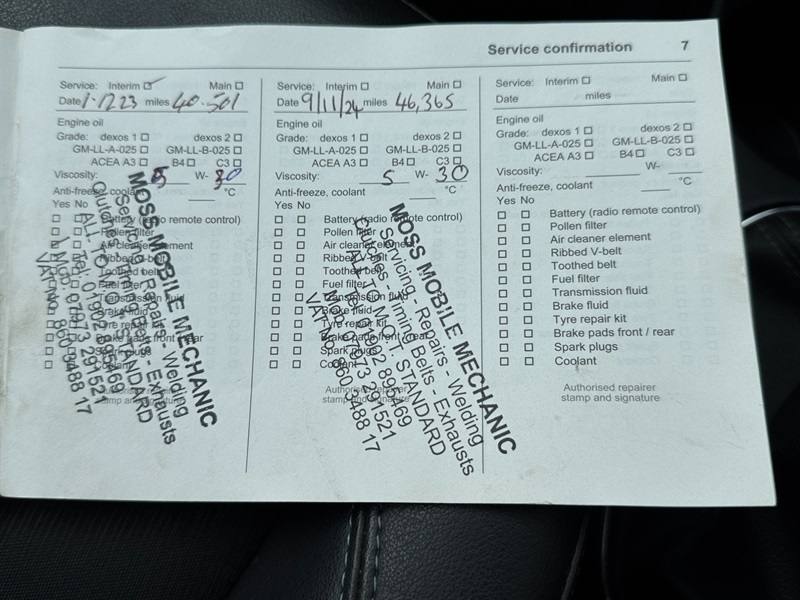 Service confirmation 7
Service: Interim Main
Date 1.12.23 miles 40.501
Engine oil
Grade: dexos 1 dexos 2
GM-LL-A-025 GM-LL-B-025
ACEA A3 B4 C3
Viscosity: 5 W- 30
Anti-freeze, coolant °C
Yes No
Battery (radio remote control)
Pollen filter
Air cleaner element
Ribbed V-belt
Toothed belt
Fuel filter
Transmission fluid
Brake fluid
Tyre repair kit
Brake pads front / rear
Spark plugs
Coolant
Authorised repairer
stamp and signature
MOSS MOBILE MECHANIC
Servicing - Repairs - Welding
Clutches - Timing Belts - Exhausts
ALL TO M.O.T. STANDARD
Tel: 01692
Mob: 07813 291521
VAT No. 860 9488 17
Service: Interim Main
Date 9/11/24 miles 46,365
Engine oil
Grade: dexos 1 dexos 2
GM-LL-A-025 GM-LL-B-025
ACEA A3 B4 C3
Viscosity: 5 W- 30
Anti-freeze, coolant °C
Yes No
Battery (radio remote control)
Pollen filter
Air cleaner element
Ribbed V-belt
Toothed belt
Fuel filter
Transmission fluid
Brake fluid
Tyre repair kit
Brake pads front / rear
Spark plugs
Coolant
Authorised repairer
stamp and signature
MOSS MOBILE MECHANIC
Servicing - Repairs - Welding
Clutches - Timing Belts - Exhausts
ALL TO M.O.T. STANDARD
Tel: 01692
Mob: 07813 291521
VAT No. 860 9488 17
Service: Interim Main
Date miles
Engine oil
Grade: dexos 1 dexos 2
GM-LL-A-025 GM-LL-B-025
ACEA A3 B4 C3
Viscosity: W-
Anti-freeze, coolant °C
Yes No
Battery (radio remote control)
Pollen filter
Air cleaner element
Ribbed V-belt
Toothed belt
Fuel filter
Transmission fluid
Brake fluid
Tyre repair kit
Brake pads front / rear
Spark plugs
Coolant
Authorised repairer
stamp and signature